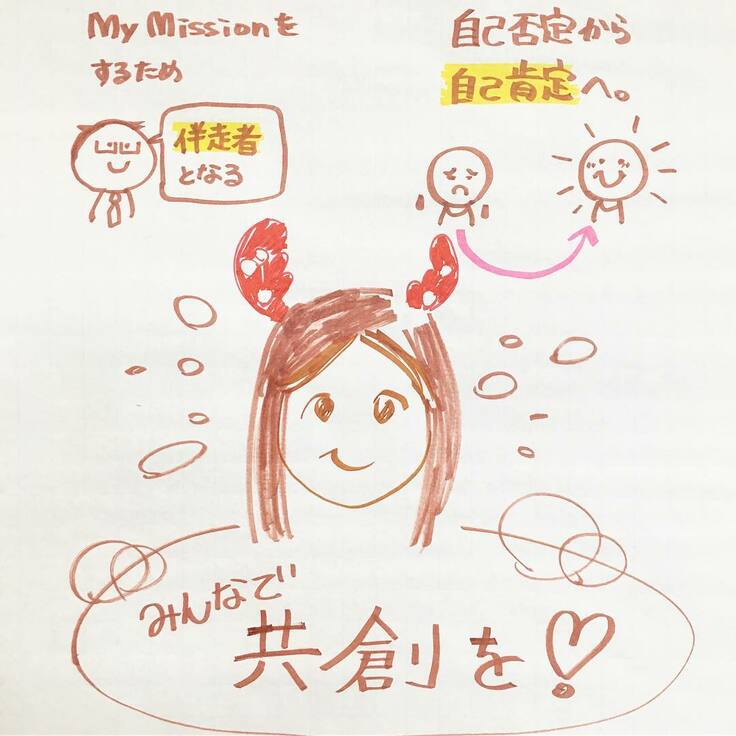 My Missionを
するため
伴走者
となる
自己否定から
自己肯定へ。
みんなで
共創を!